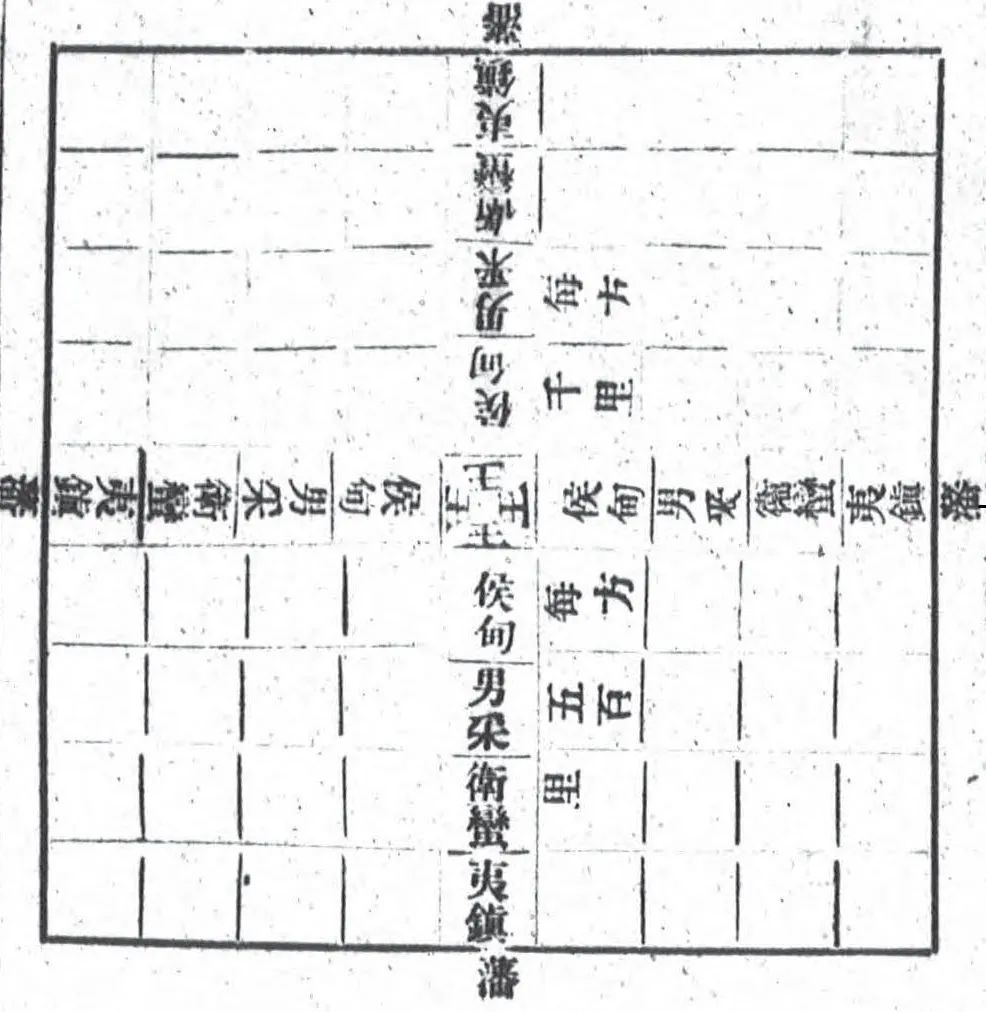 藩
鎮夷
蠻衛
采男
甸侯
每方
千里
藩
鎮夷
蠻衛
采男
甸侯
王
王
王
王
侯甸
男采
衛蠻
夷鎮
藩
每方
五百
里
侯甸
男采
衛蠻
夷鎮
藩